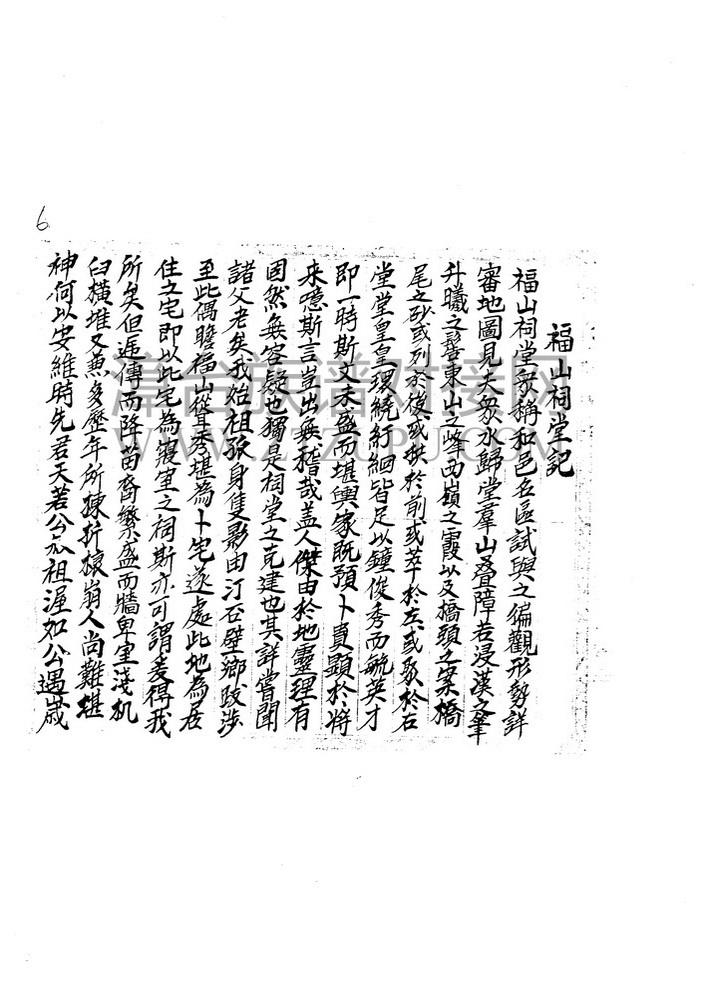 6
福山祠堂記
福山祠堂眾稱和邑名區試與之偏觀形勢詳
審地圖見夫眾水歸堂羣山叠障若浸漢之筆
升曦之髻東山之峰西嶺之霞以及橋頭之案橋
尾之砂或列於後或拱於前或萃於左或聚於右
堂堂皇皇環繞紆細皆足以鐘俊秀而毓英才
即一時斯文未盛而堪輿家既預卜貴顯於將
來噫斯言豈出無稽哉盖人傑由於地靈理有
固然無容疑也獨是祠堂之克建也其詳嘗聞
諸父老矣我始祖孤身隻影由汀石壁鄉跋涉
至此偶瞻福山聳秀堪為卜宅遂處此地為居
住之宅即以此宅為寢室之祠斯亦可謂爰得我
所矣但遞傳而降苗裔繁盛而牆卑室淺机
臼橫堆又兼多歷年所棟折榱崩人尚難堪
神何以安維時先君天若公叔祖渥如公遇歲